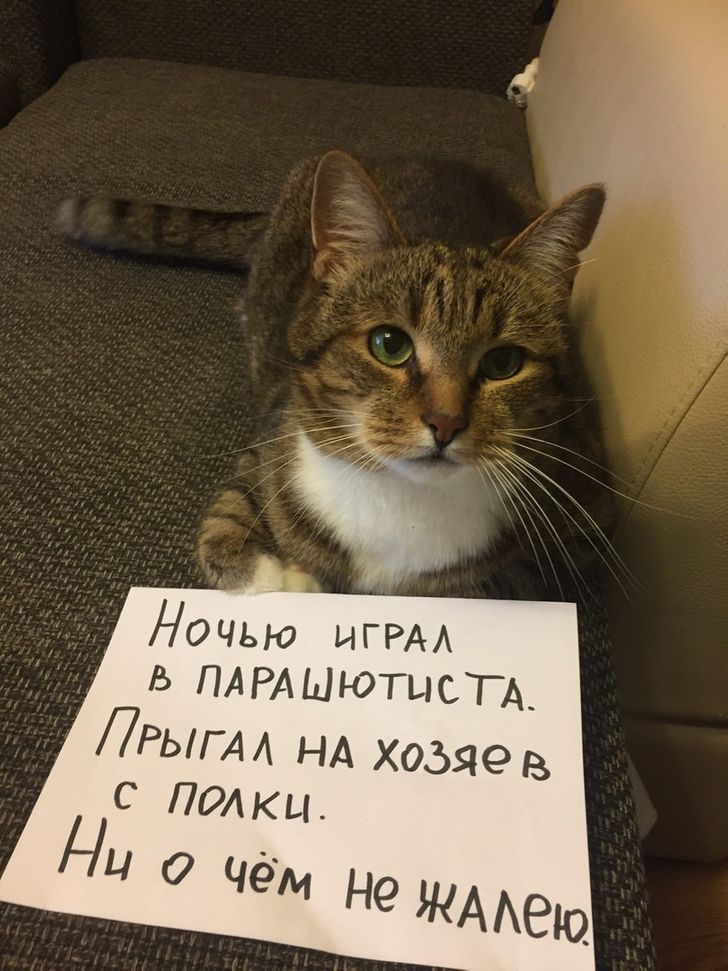 Ночью играл
в парашютиста.
Прыгал на хозяев
с полки.
Ни о чём не жалею.